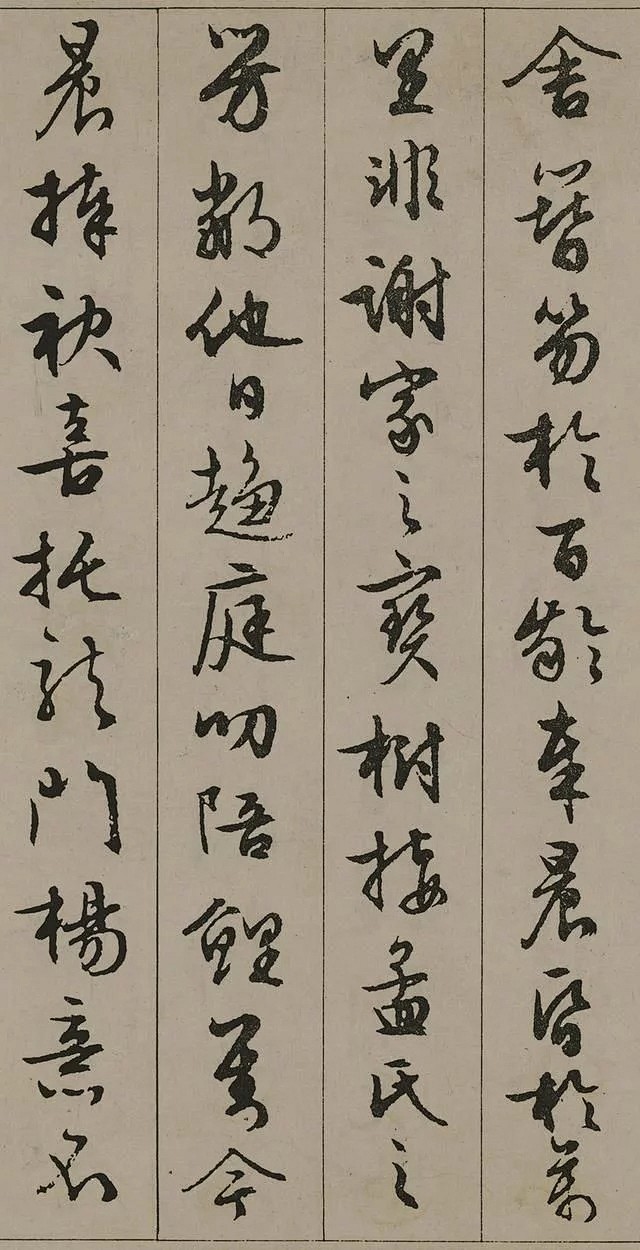 舍簪笏於百齡奉晨昏於萬
里非謝家之寶樹接孟氏之
芳鄰他日趨庭叨陪鯉對今
晨捧袂喜托龍門楊意不